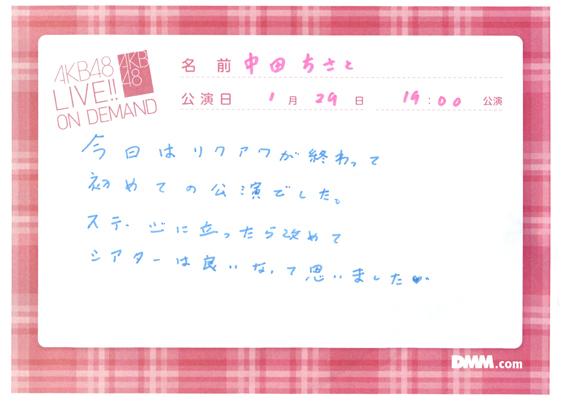 AKB48
LIVE!!
ON DEMAND
AKB
48
名 前 中田ちさと
公演日 1月 29日 19:00 公演
今日はリクアワが終わって
初めての公演でした。
ステージに立ったら改めて
シアターは良いなって思いました♥
DMM.com